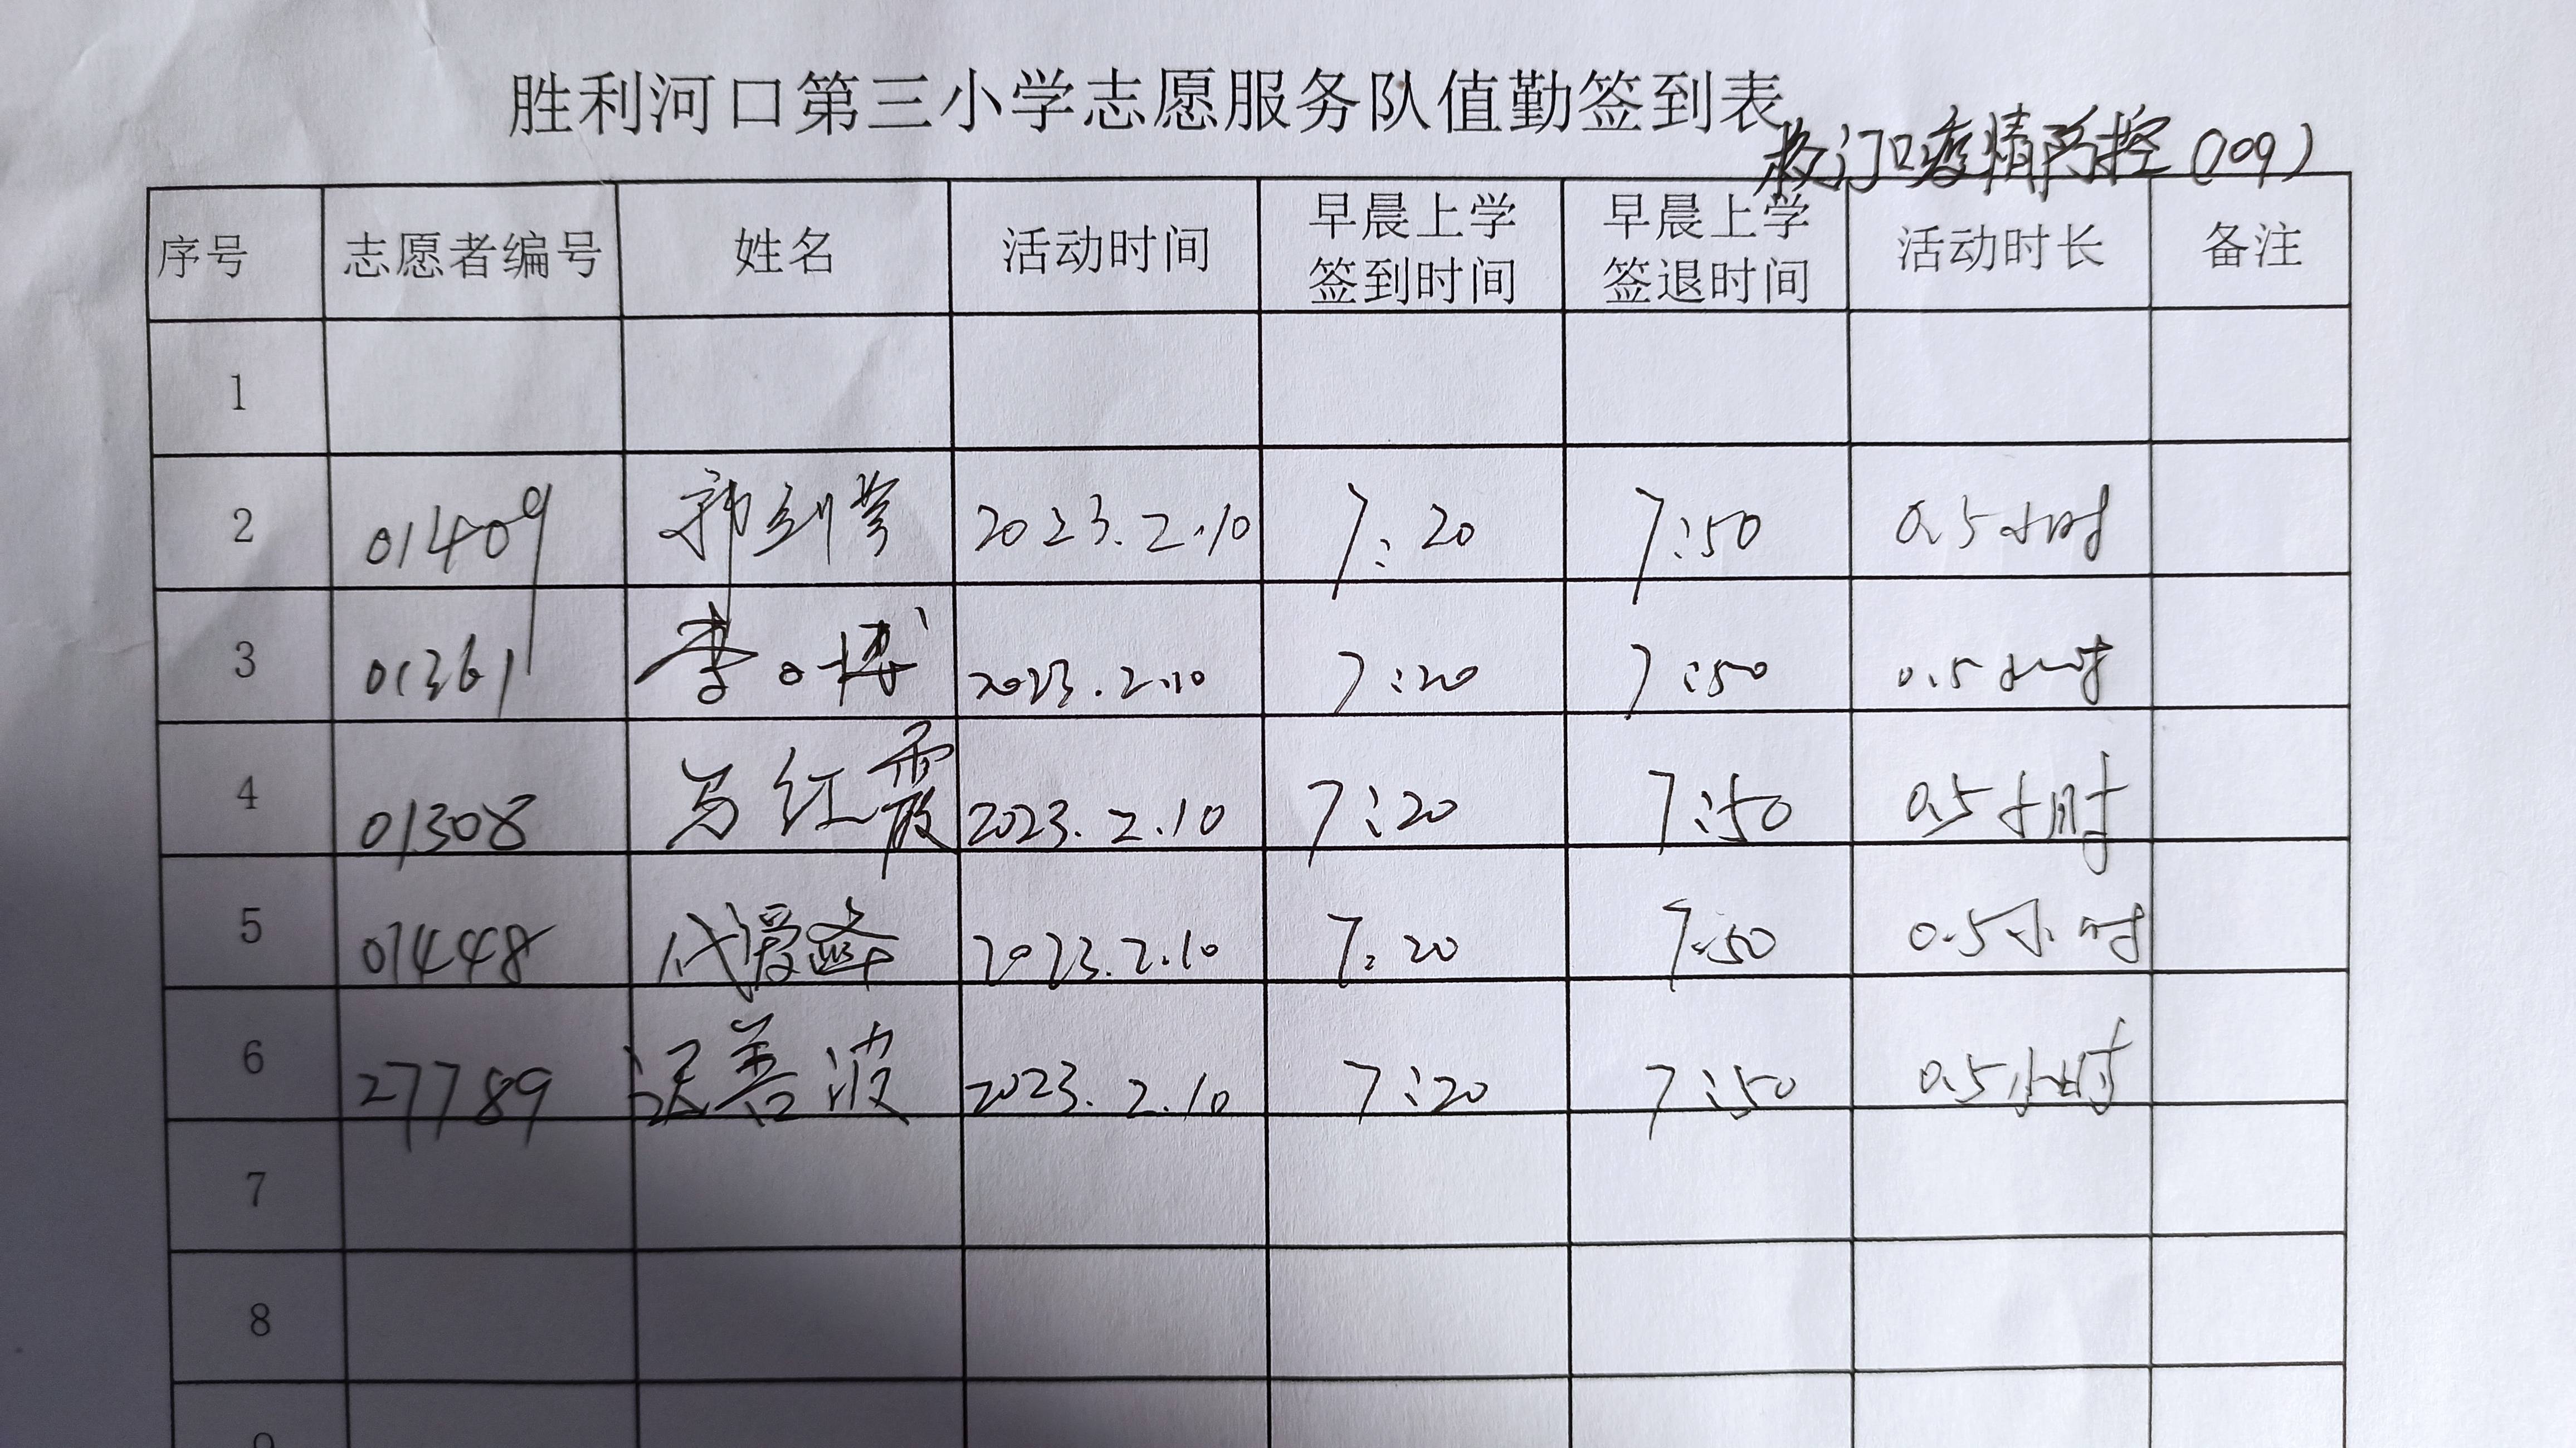 胜利河口第三小学志愿服务队值勤签到表
校门口疫情防控（109）
序号 志愿者编号 姓名 活动时间 早晨上学签到时间 早晨上学签退时间 活动时长 备注
1
2 01409 郭剑 2023.2.10 7:20 7:50 0.5小时
3 01361 李 博 2023.2.10 7:20 7:50 0.5小时
4 01308 马红霞 2023.2.10 7:20 7:50 0.5小时
5 01448 代爱 2023.2.10 7:20 7:50 0.5小时
6 27789 善波 2023.2.10 7:20 7:50 0.5小时
7
8
9